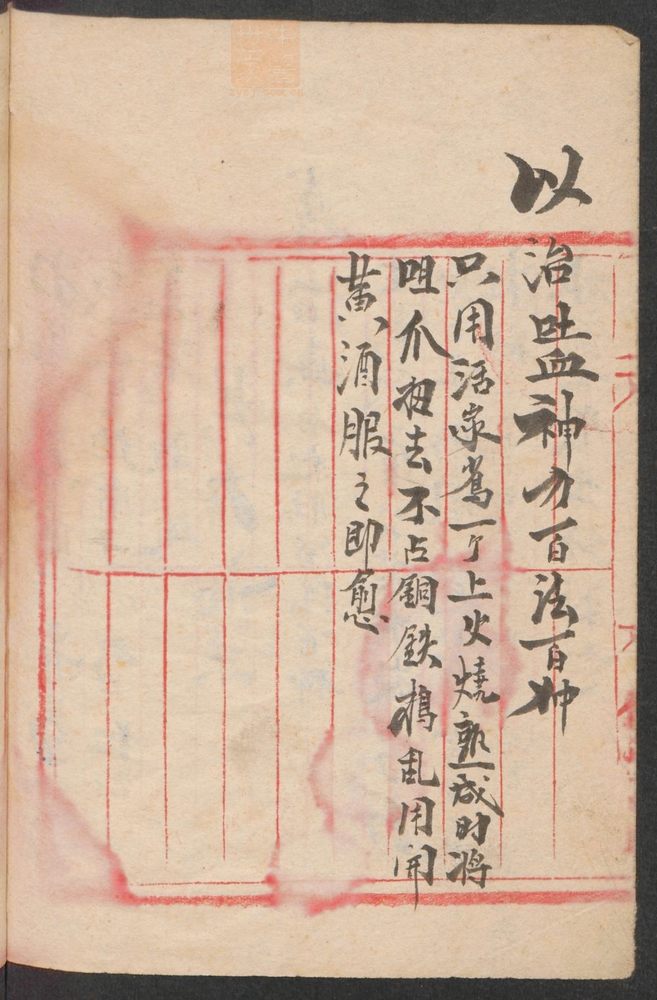 以治吐血神方百法百中
只用活家雀一个上火燒熟成时将
咀爪初去不占銅鉄搗乱用開
黄酒服之即愈